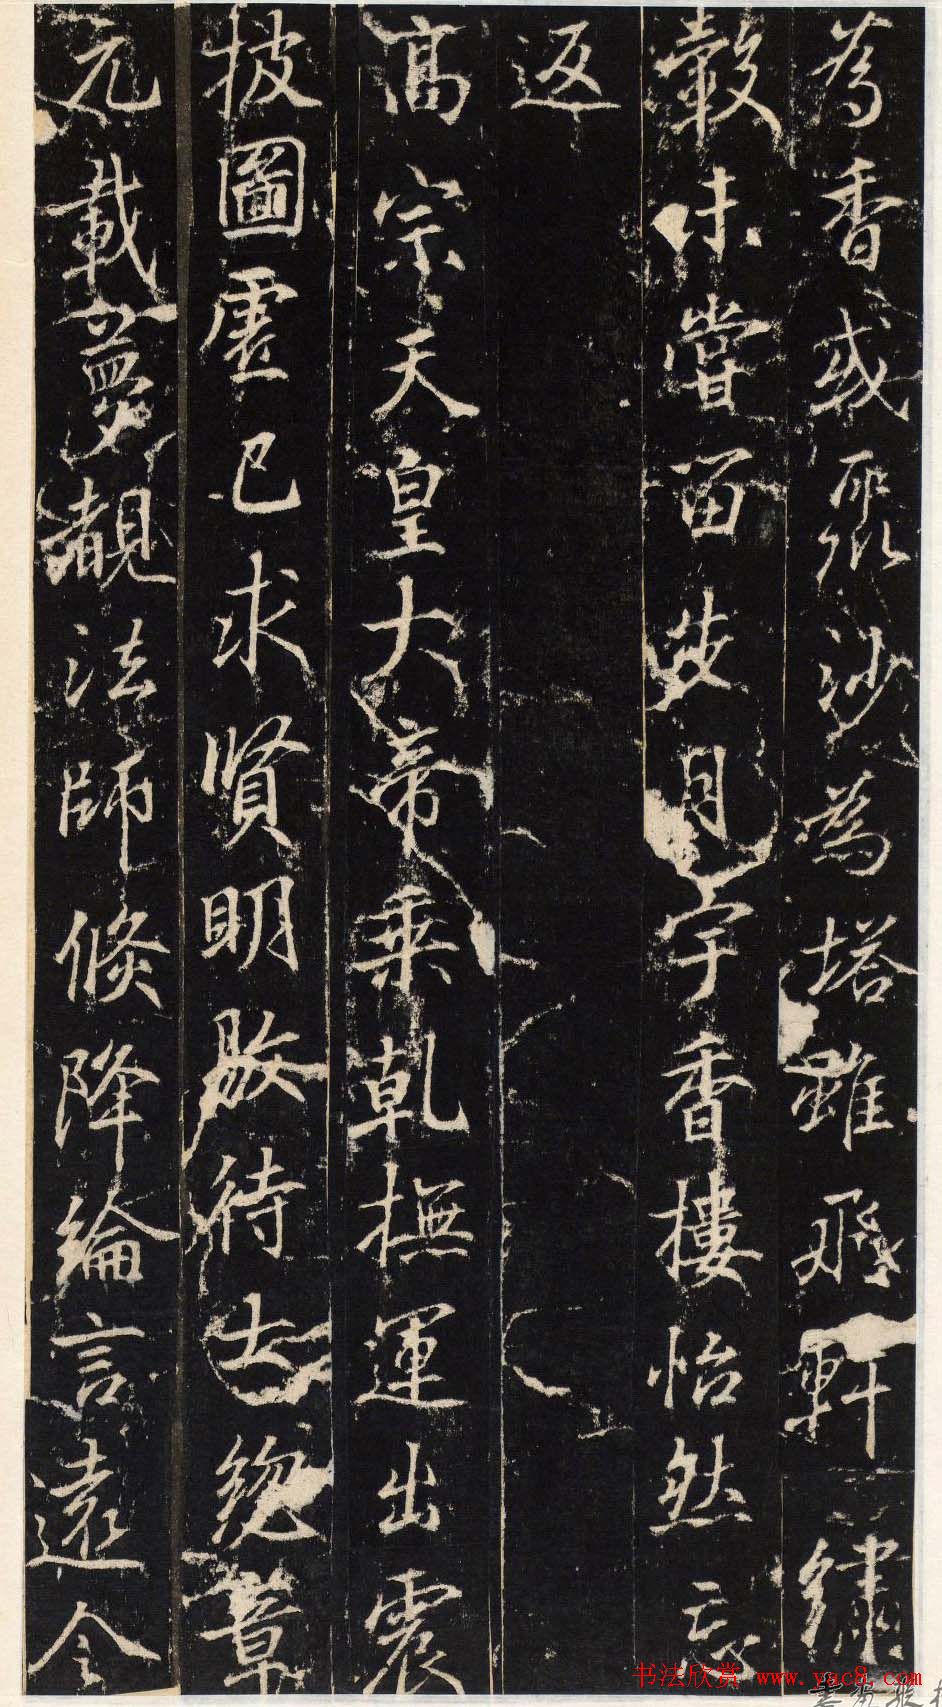 為香或聚沙為塔雖飛軒繡
轂未嘗留步月宇香樓怡然忘
返
高宗天皇大帝乘乾撫運出震
披圖虛己求賢明敭待士總章
元載夢覩法師倏降綸言遠令
书法欣赏 www.yac8.com